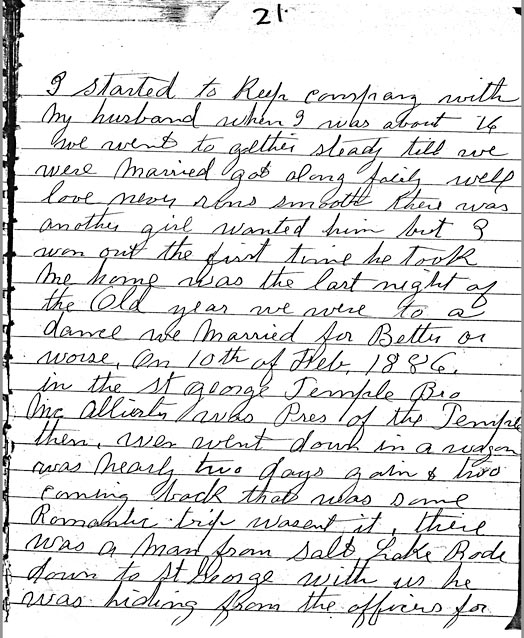 21.
I started to Keep company with
my husband when I was about 16
we went to gether steady till we
were Married got along faily well
love never runs smooth there was
another girl wanted him but I
won out the first time he took
me home was the last night of
the Old year we were to a
dance we Married for Better or
worse. On 10th of Feb. 1886.
in the St george Temple Bro
Mc Allister was Pres of the Temple
then. wer went down in a wagon
was nearly two days goin & two
coming back that was some
Romantic trip wasent it, there
was a man from Salt Lake Rode
down to St George with us he
was hiding from the officers for